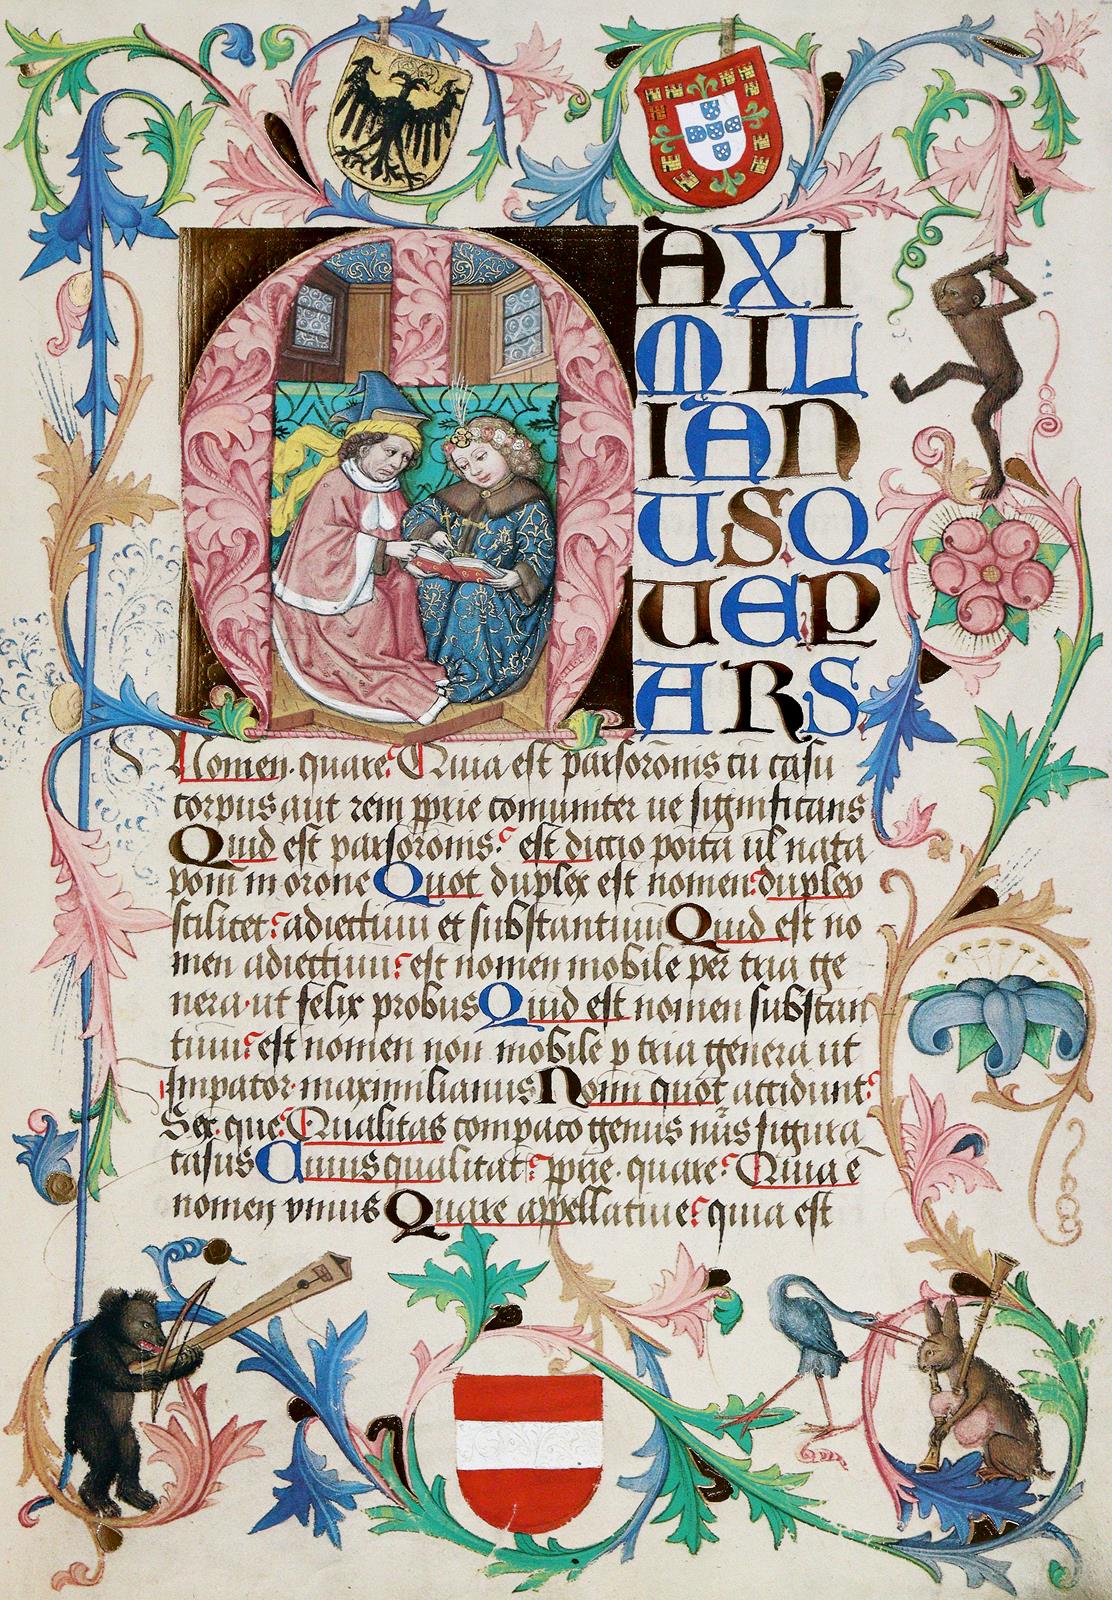 MAXI
MIL
IAN
USQ
UEP
ARS
Nomen quare Quia est parsoronis cu casu
corpus aut rem pprie comuniter ue significans
Quid est parsoronis est dictio poita ul nata
poni in orone Quot duplex est nomen duplex
scilicet adiectiuu et substantiuu Quid est no
men adiectiuu est nomen mobile per tria ge
nera ut felix probus Quid est nomen substan
tiuu est nomen non mobile p tria genera ut
Impator maximilianus Noim quot accidunt
Sex que Qualitas compaco genus nus figura
casus Cuius qualitat pprie quare Quia e
nomen vnius Quare appellatiue quia est